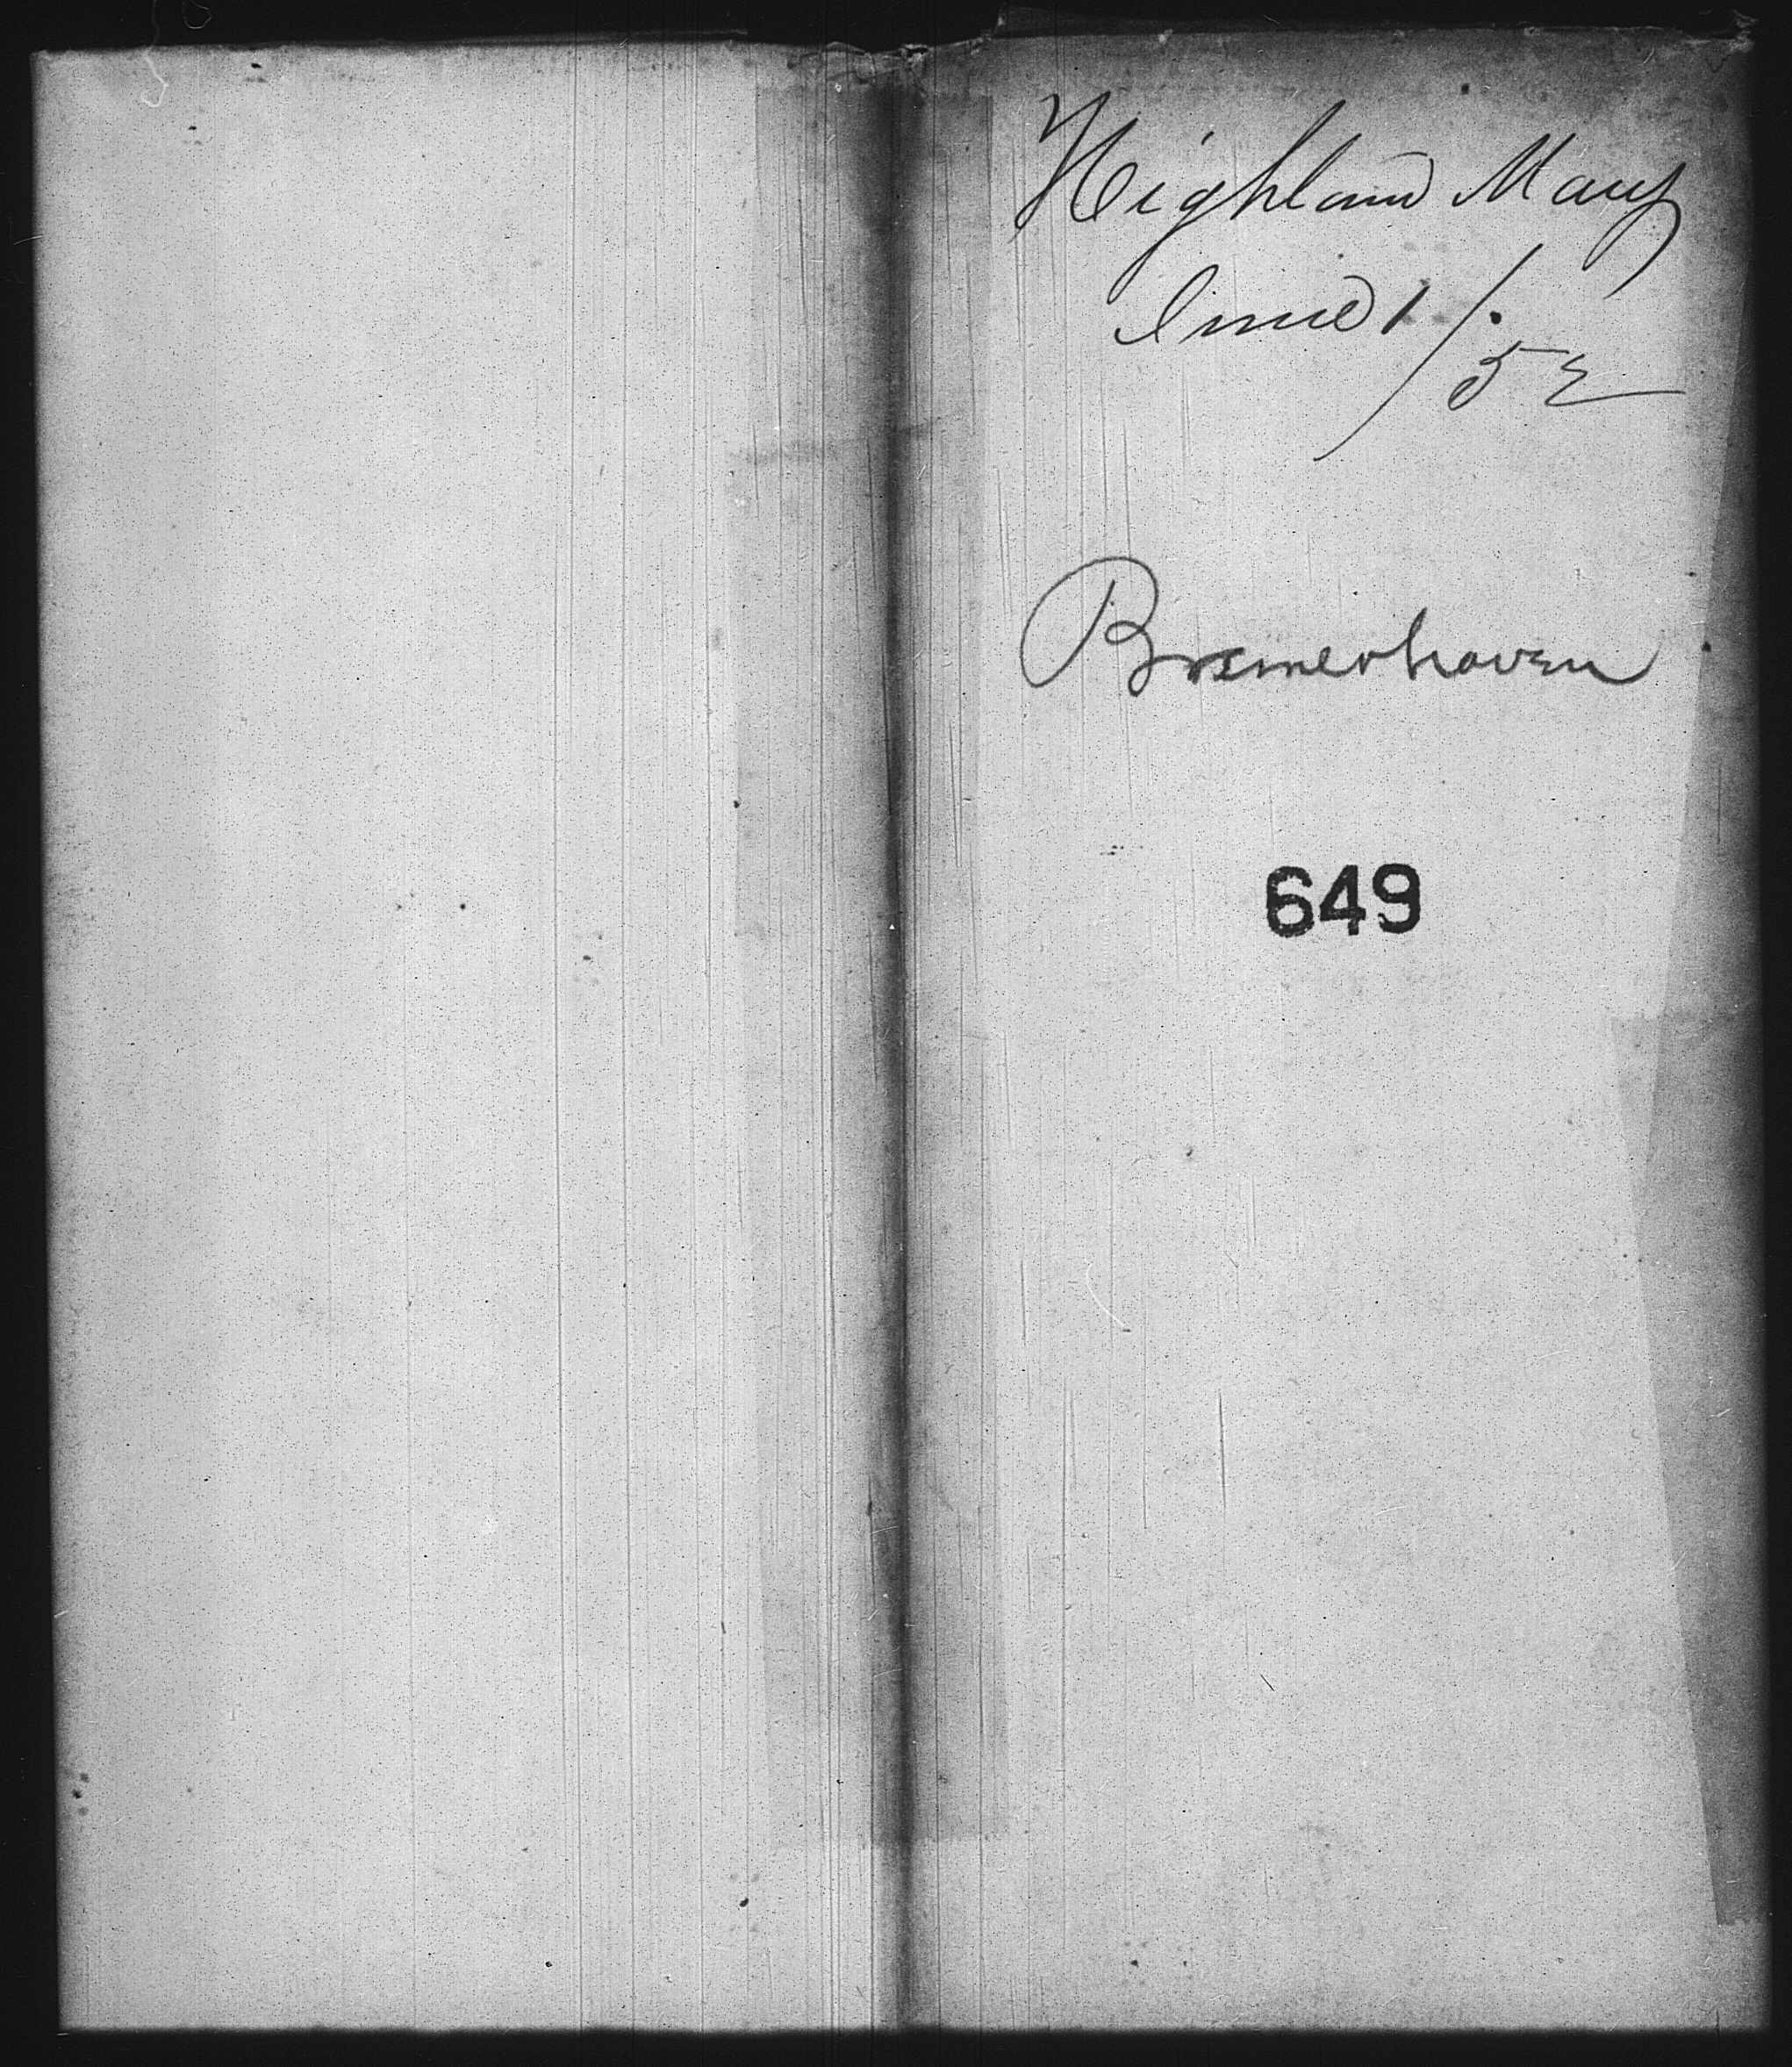 Highland Mary
June 1/52
Bremerhaven
649